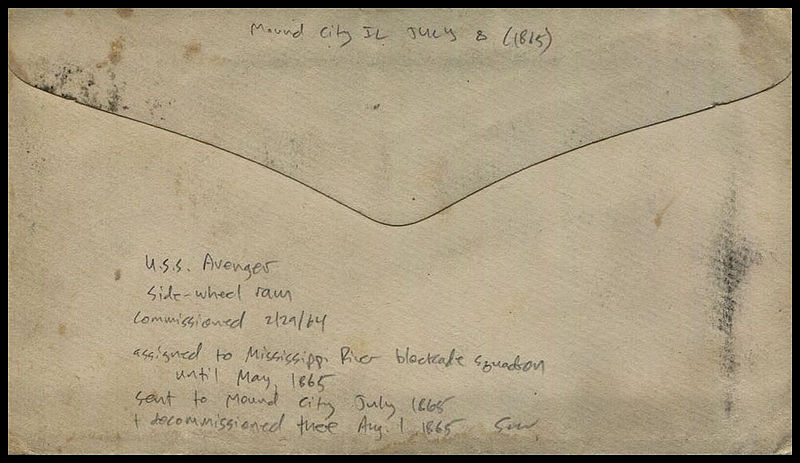 Mound City IL July 8 (1865)
U.S.S. Avenger
side-wheel ram
commissioned 2/29/64
assigned to Mississippi River blockade squadron
until May, 1865
sent to Mound City July 1865
+ decommissioned there Aug. 1 1865